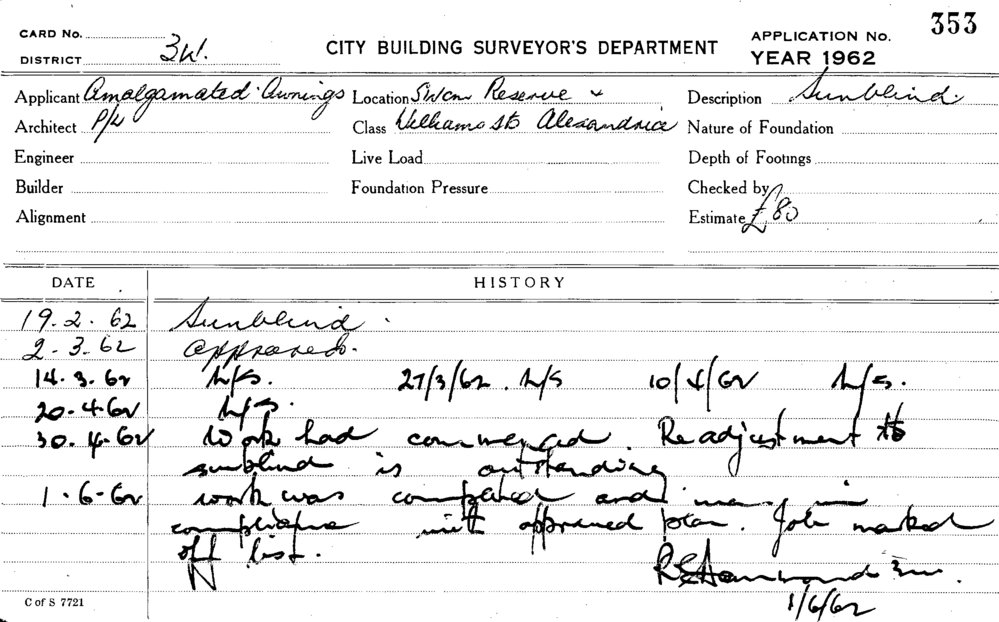 353
CARD No.
DISTRICT 3W.
CITY BUILDING SURVEYOR'S DEPARTMENT
APPLICATION No.
YEAR 1962
Applicant Amalgamated Awnings Location Swan Reserve & Description Sunblind.
Architect P/L Class Williams sts Alexandria Nature of Foundation
Engineer Live Load Depth of Footings
Builder Foundation Pressure Checked by
Alignment Estimate £80
DATE HISTORY
19.2.62 Sunblind.
2-3-62 Approved.
14.3.62 N/S. 27/3/62. N/S 10/4/62 N/S.
20-4-62 N/S.
30.4-62 Work had commenced. Readjustment to
sunblind is outstanding
1-6-62 work was completed and in
compliance with approved plan. Job marked
off list.
R E Hammond 3W.
1/6/62
C of S 7721